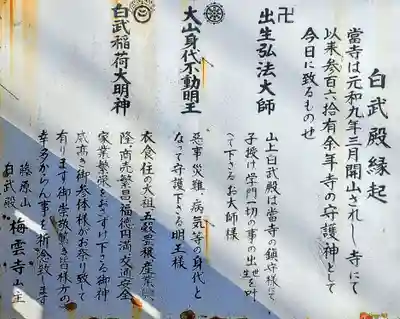 白武殿縁起
當寺は元和九年三月開山されし寺にて
以来参百六拾有余年寺の守護神として
今日に致るものぞ
卍
出生弘法大師
山上白武殿は當寺の鎮守様にて、
子授け学門一切の事の出世を叶
へて下さるお大師様
大山身代不動明王
悪事災難、病気等の身代と
なって守護下さる明王様
白武稲荷大明神
衣食住の大祖五穀豊穣産業興
隆商売繁昌福徳円満交通安全
家業繁栄をさずけ下さる御神
威高き御参体様がお祭り致し
有ります御崇敬厚き皆様方の
幸多からん事を祈念致します
藤原山 梅雲寺山主
白武殿